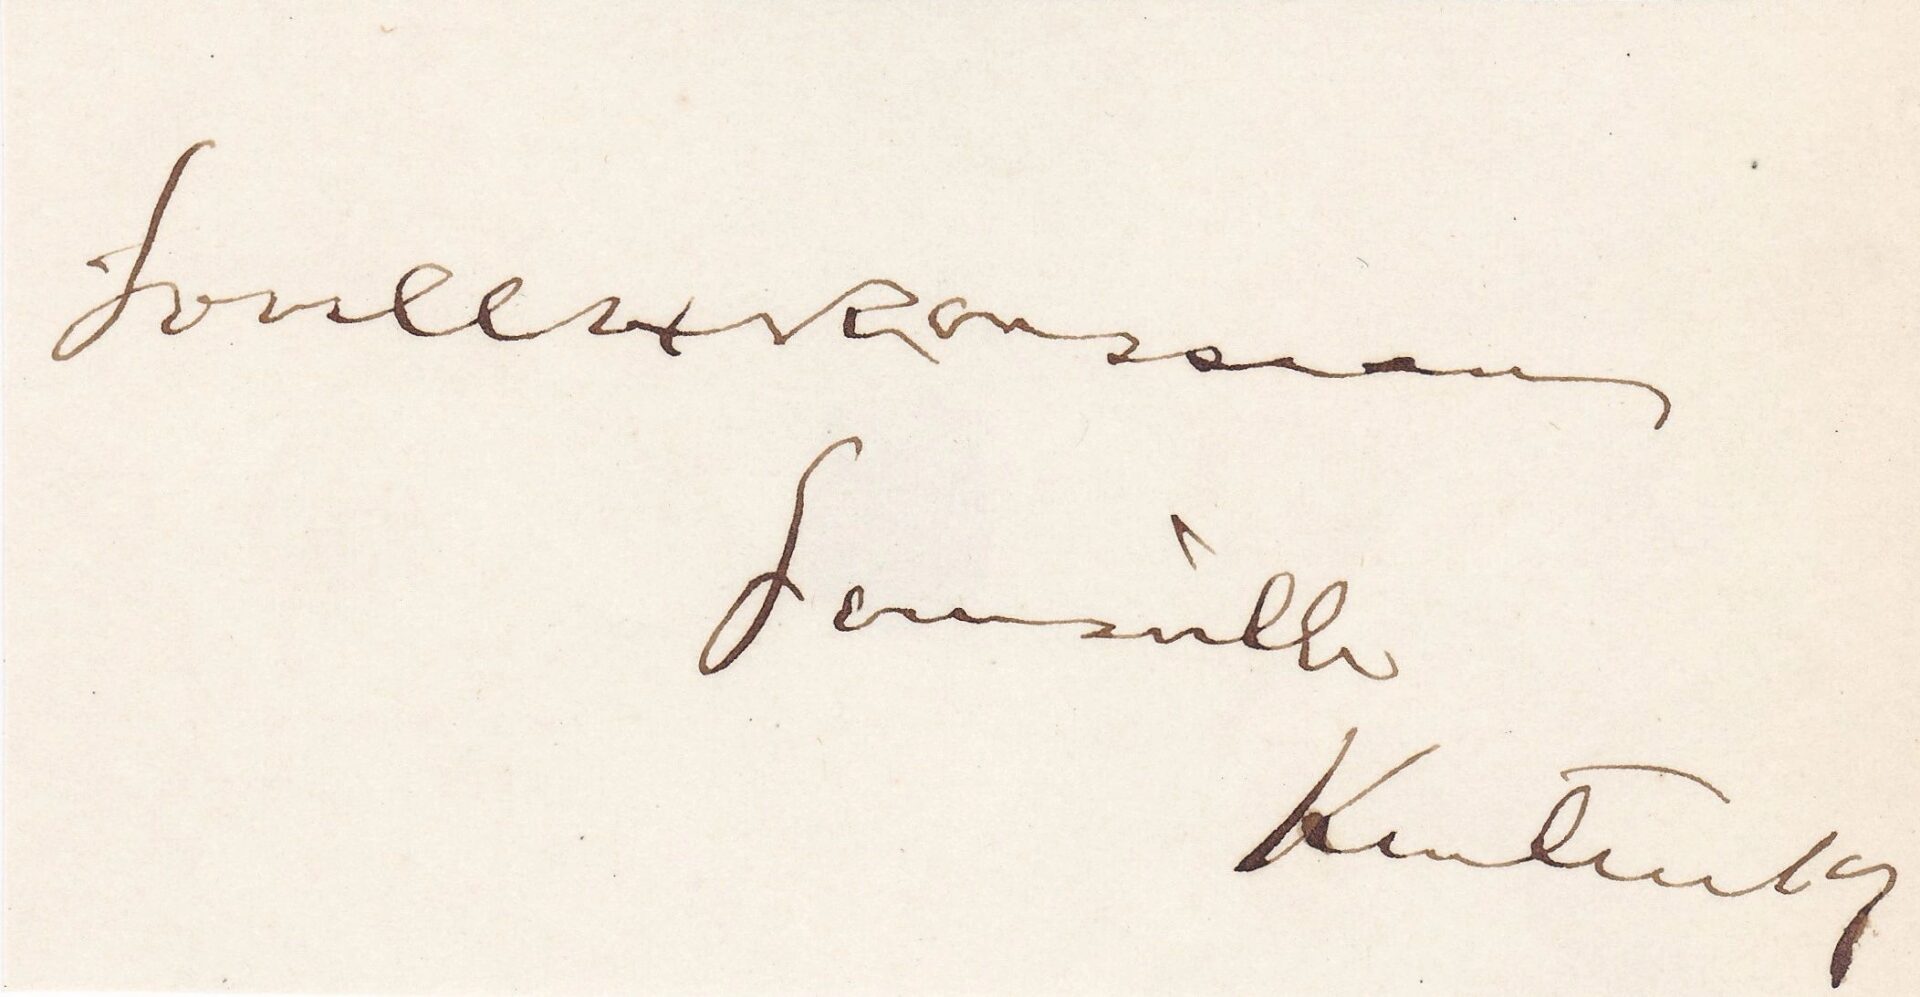 Lovell H Rousseau
Louisville
Kentucky